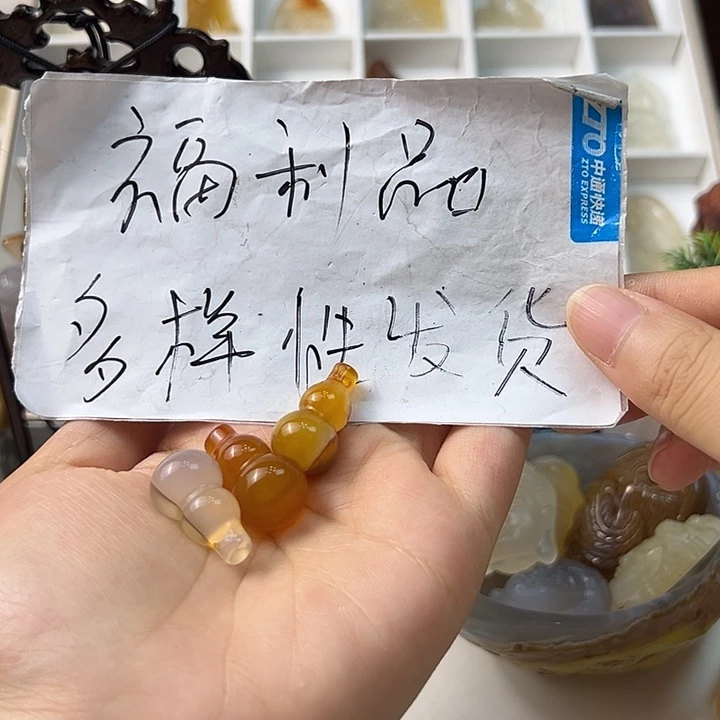 福利品
多样性发货
ZTO
中通快递
ZTO EXPRESS